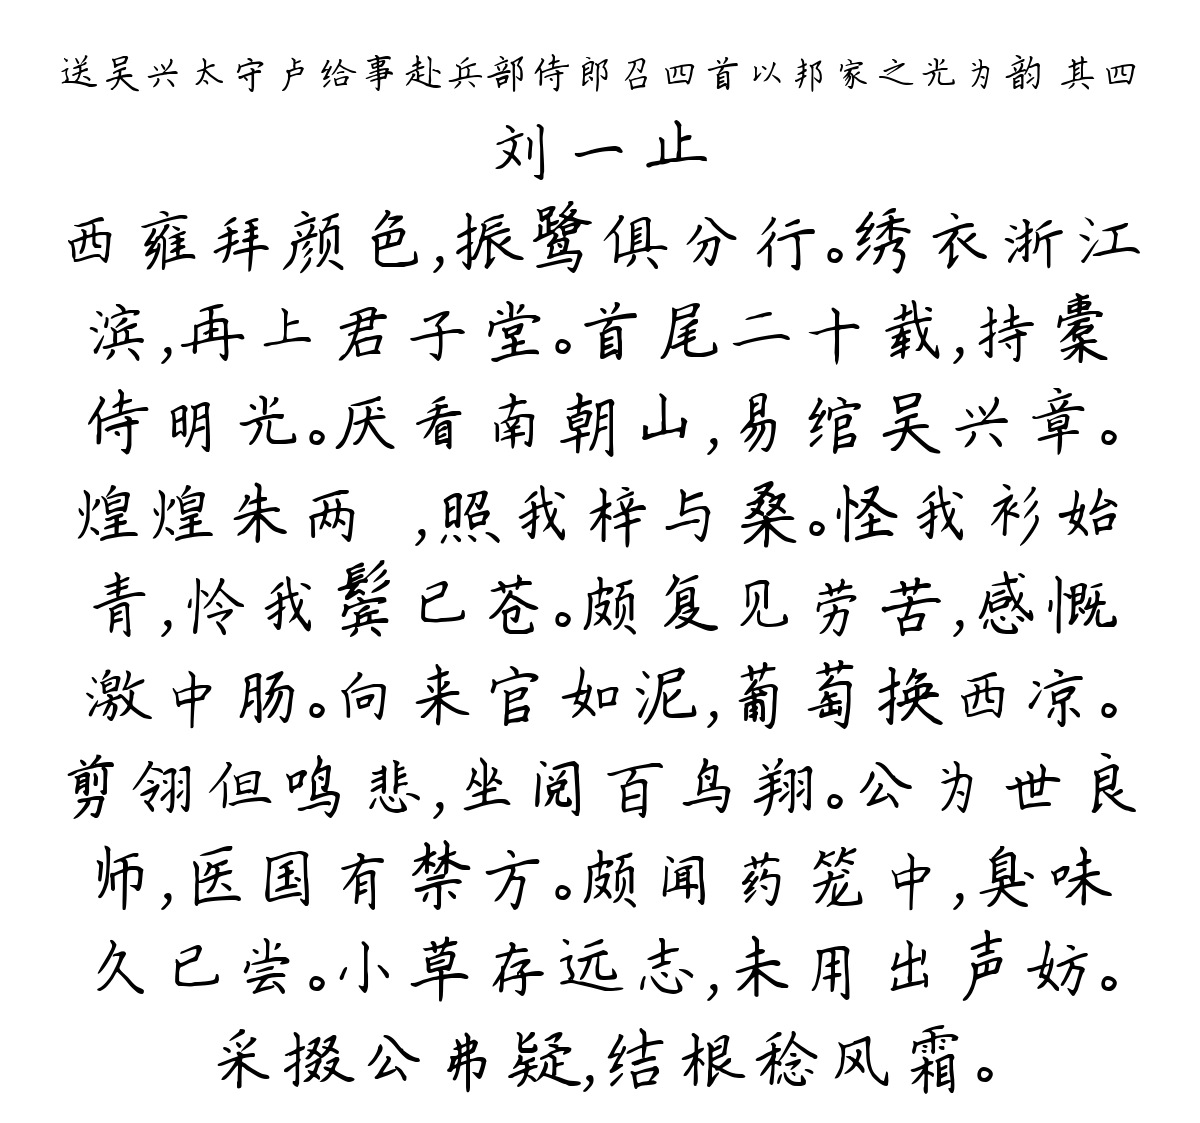 送吴兴太守卢给事赴兵部侍郎召四首以邦家之光为韵 其四
刘一止
西雍拜颜色,振鹭俱分行。绣衣浙江
滨,再上君子堂。首尾二十载,持橐
侍明光。厌看南朝山,易绾吴兴章。
煌煌朱两 ,照我梓与桑。怪我衫始
青,怜我鬓已苍。颇复见劳苦,感慨
激中肠。向来官如泥,葡萄换西凉。
剪翎但鸣悲,坐阅百鸟翔。公为世良
师,医国有禁方。颇闻药笼中,臭味
久已尝。小草存远志,未用出声妨。
采掇公弗疑,结根稔风霜。